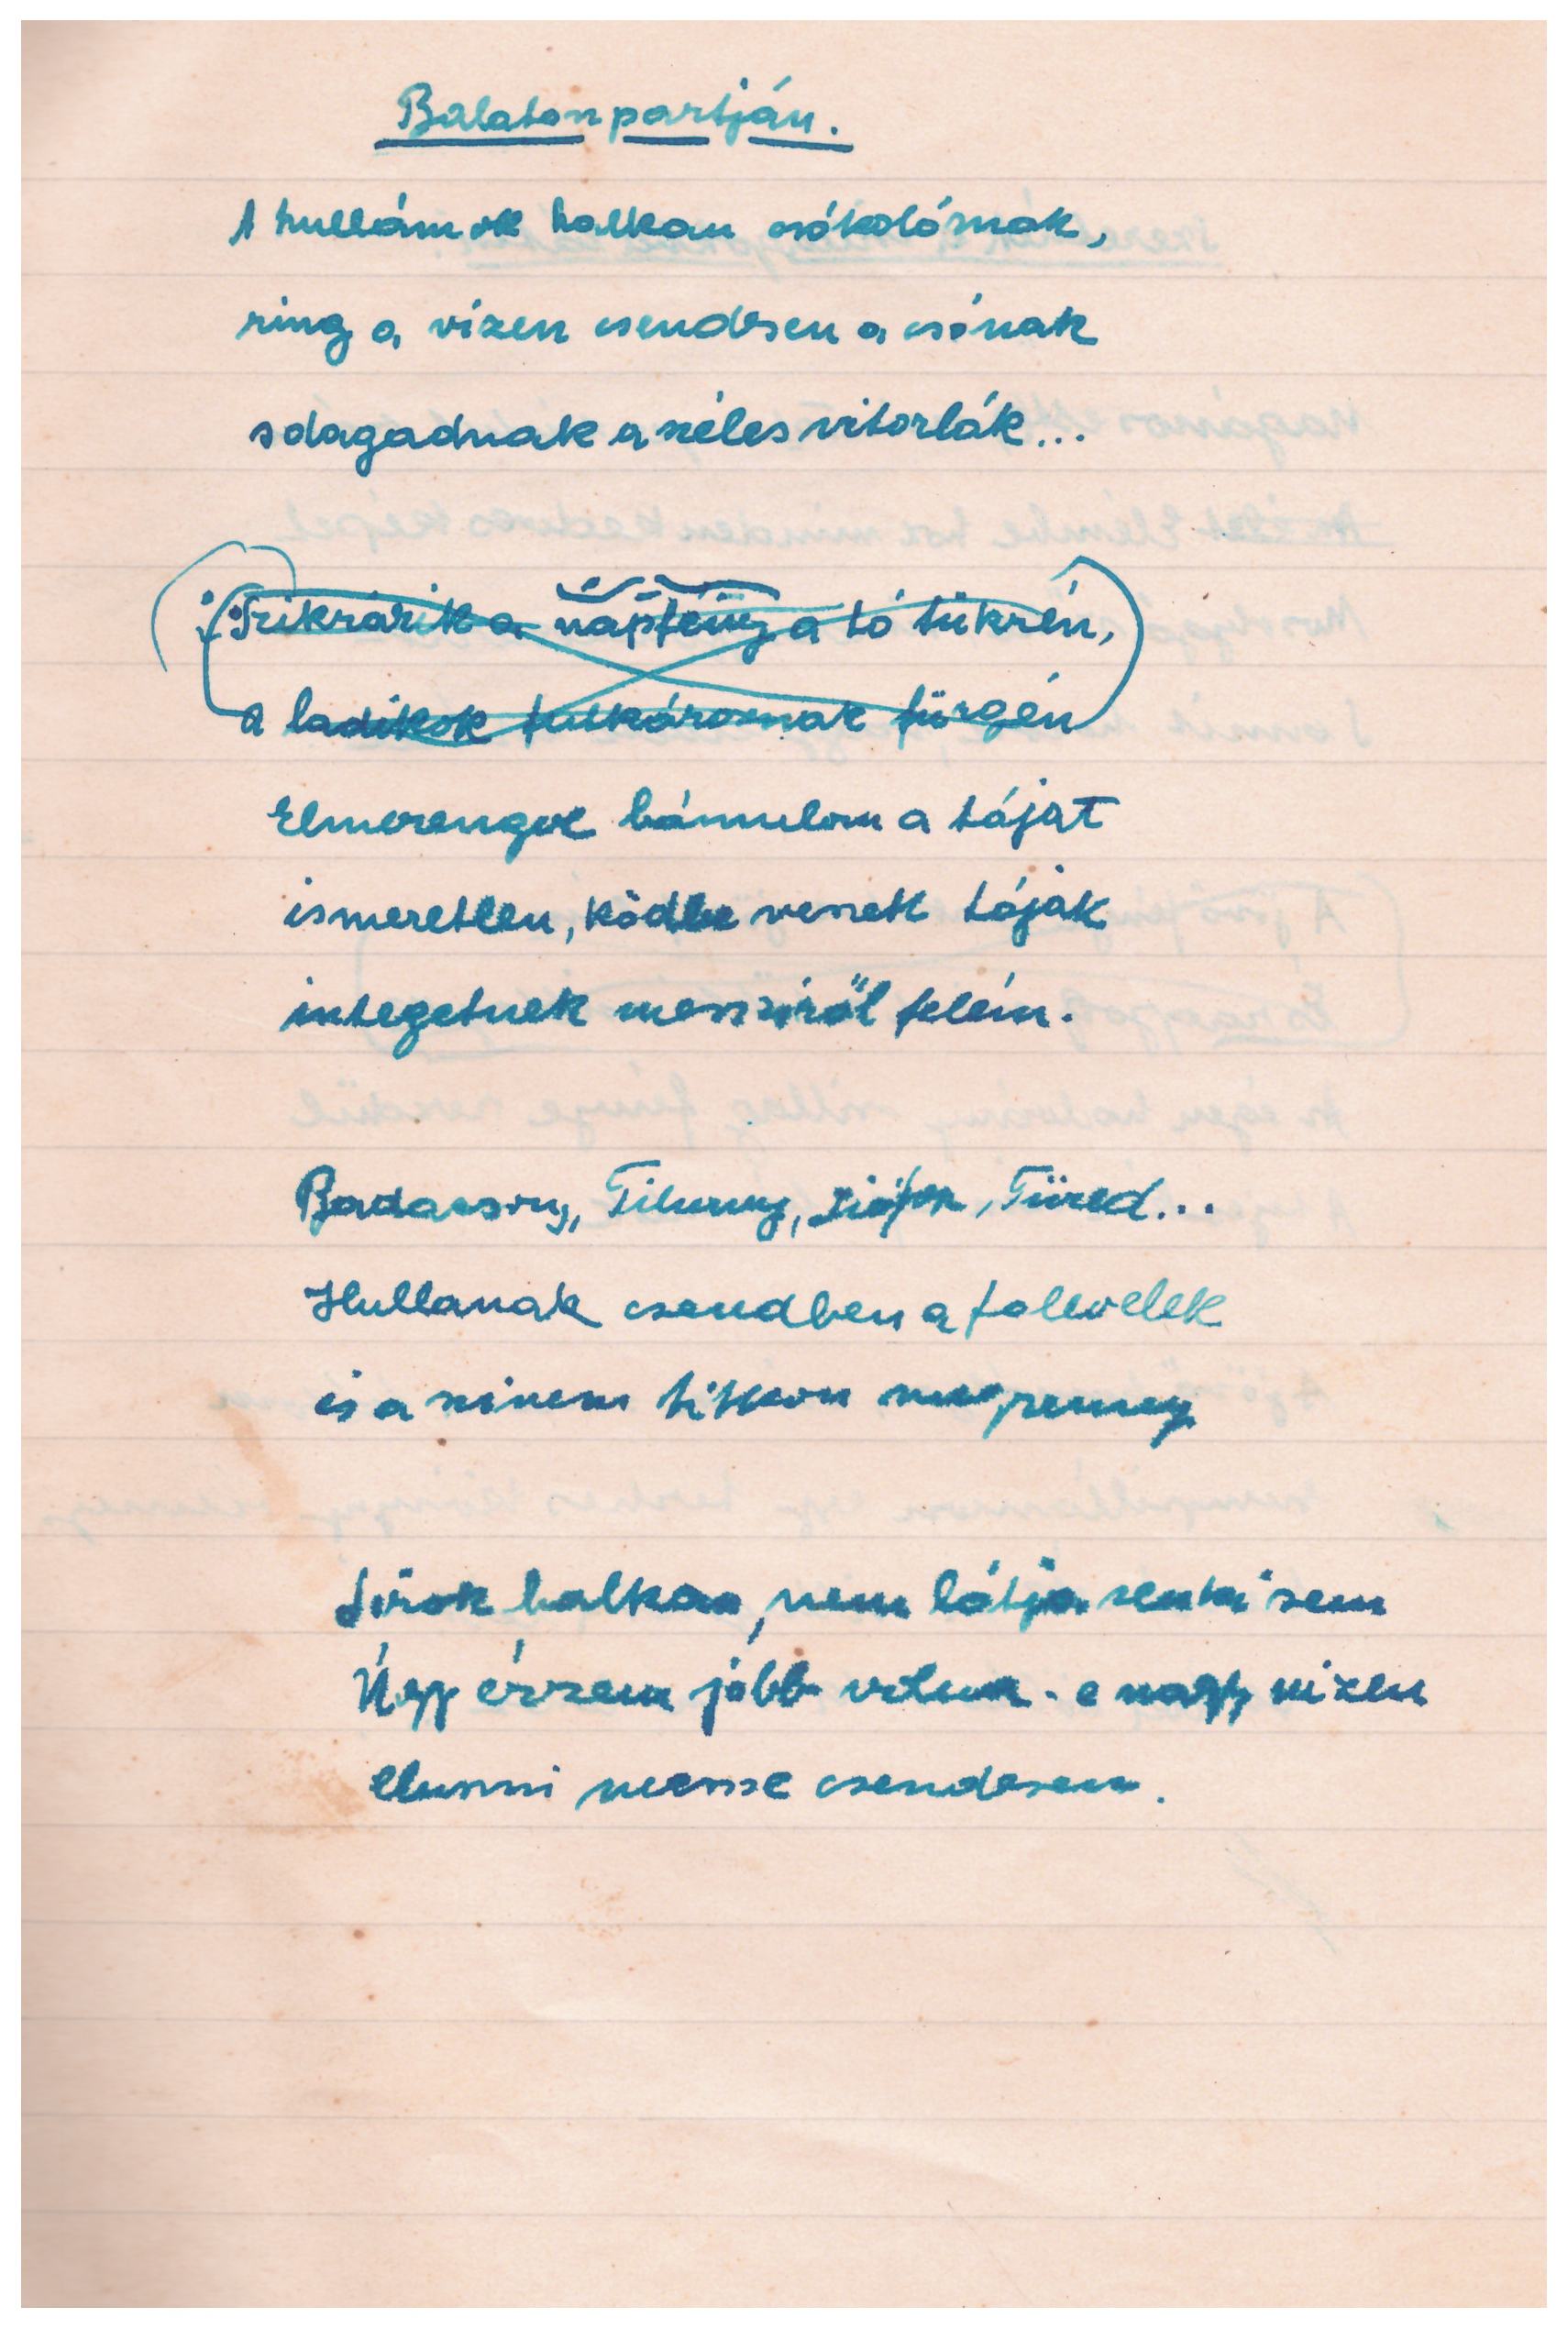 Balaton partján.
A hullámok halkan csókolóznak,
ring a vizen csendesen a csónak
s dagadnak a széles vitorlák...
Szikrázik a napfény a tó tükrén,
a ladikok futkároznak fürgén
Elmerengve bámulom a tájat
ismeretlen, ködbe veszett tájak
integetnek messziről felém.
Badacsony, Tihany, Siófok, Füred...
Hullanak csendben a falevelek
és a szivem titkon megremeg
Sirok halkan, nem látja senki sem
Úgy érzem jobb volna - e nagy vizen
elúszni messze csendesen.